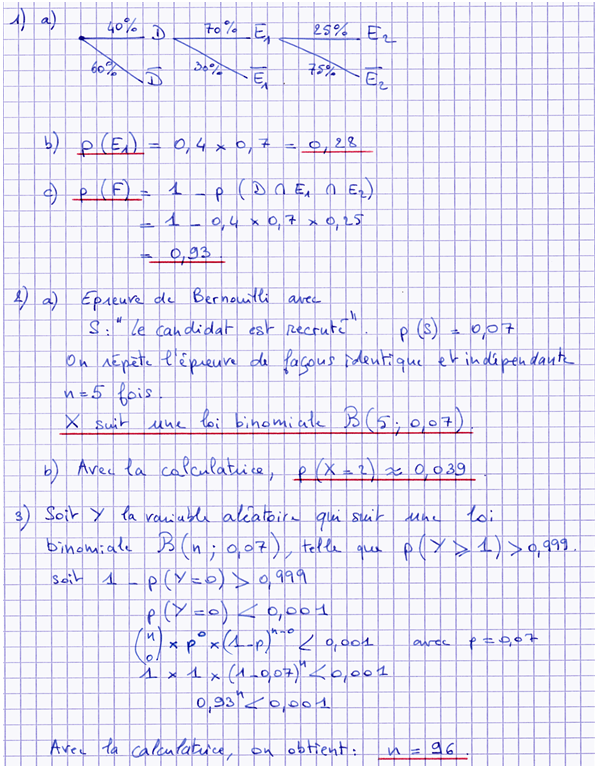 1) a) 40% D 70% E₁ 25% E₂
60% D̅ 30% E̅₁ 75% E̅₂
b) p(E₁) = 0,4 × 0,7 = 0,28
c) p(F) = 1 - p(D ∩ E₁ ∩ E₂)
= 1 - 0,4 × 0,7 × 0,25
= 0,93
2) a) Epreuve de Bernouilli avec
S : "le candidat est recruté". p(S) = 0,07
On répète l'épreuve de façons identique et indépendante
n=5 fois.
X suit une loi binomiale B(5 ; 0,07).
b) Avec la calculatrice, p(X=2) ≈ 0,039.
3) Soit Y la variable aléatoire qui suit une loi
binomiale B(n ; 0,07), telle que p(Y ⩾ 1) > 0,999.
soit 1 - p(Y=0) > 0,999
p(Y=0) < 0,001
(n 0) × p⁰ × (1-p)ⁿ⁻⁰ < 0,001 avec p = 0,07
1 × 1 × (1-0,07)ⁿ < 0,001
0,93ⁿ < 0,001
Avec la calculatrice, on obtient : n = 96.